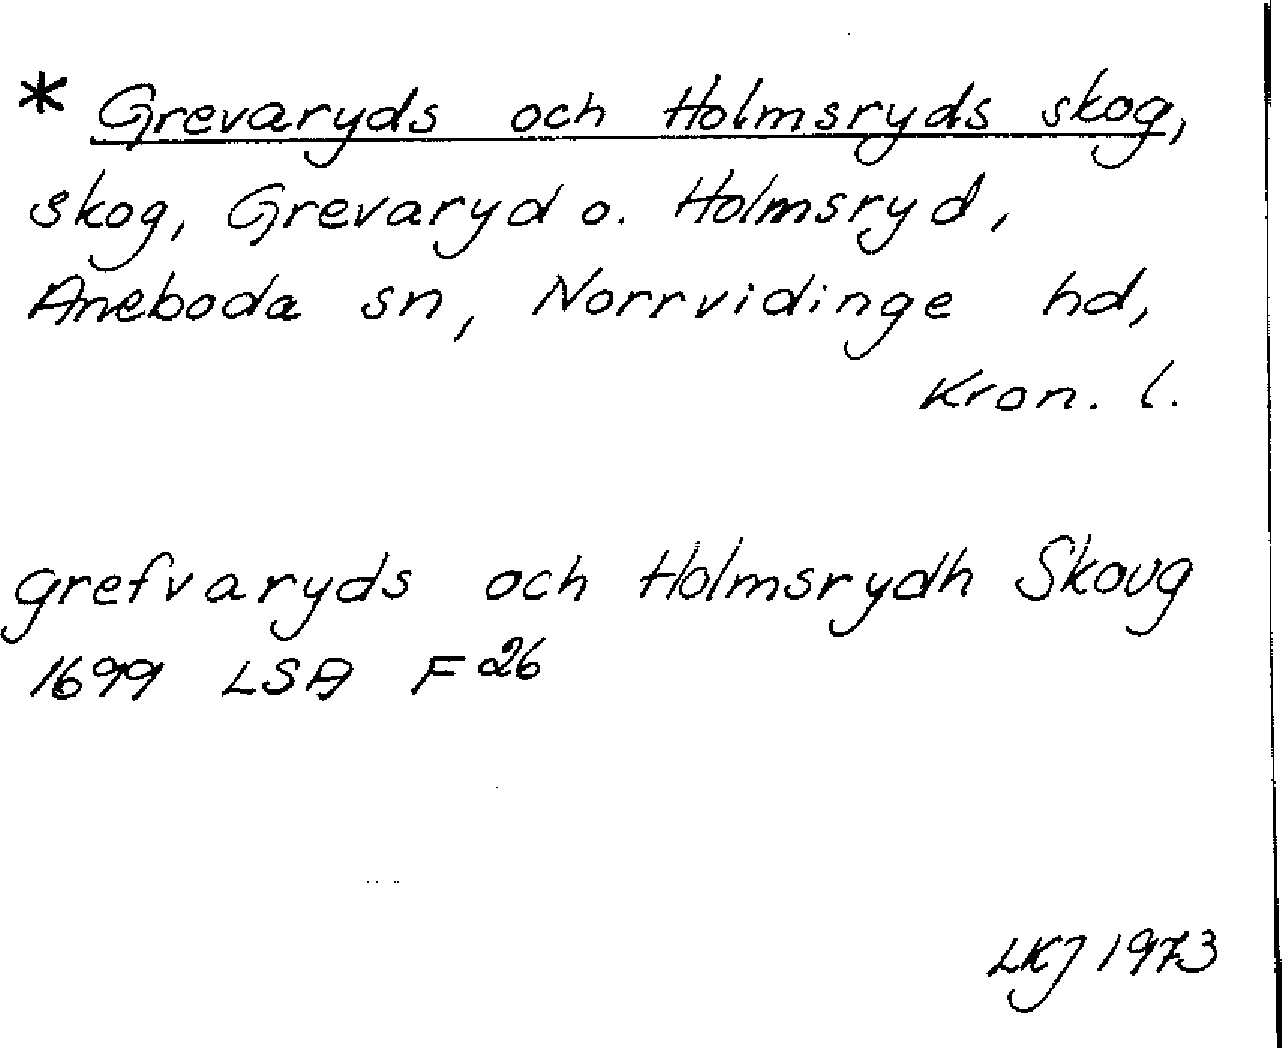 * Grevaryds och Holmsryds skog,
skog, Grevaryd o. Holmsryd,
Aneboda sn, Norrvidinge hd,
Kron. l.
grefvaryds och Holmsrydh Skoug
1699 LSA F 26
LKJ 1973